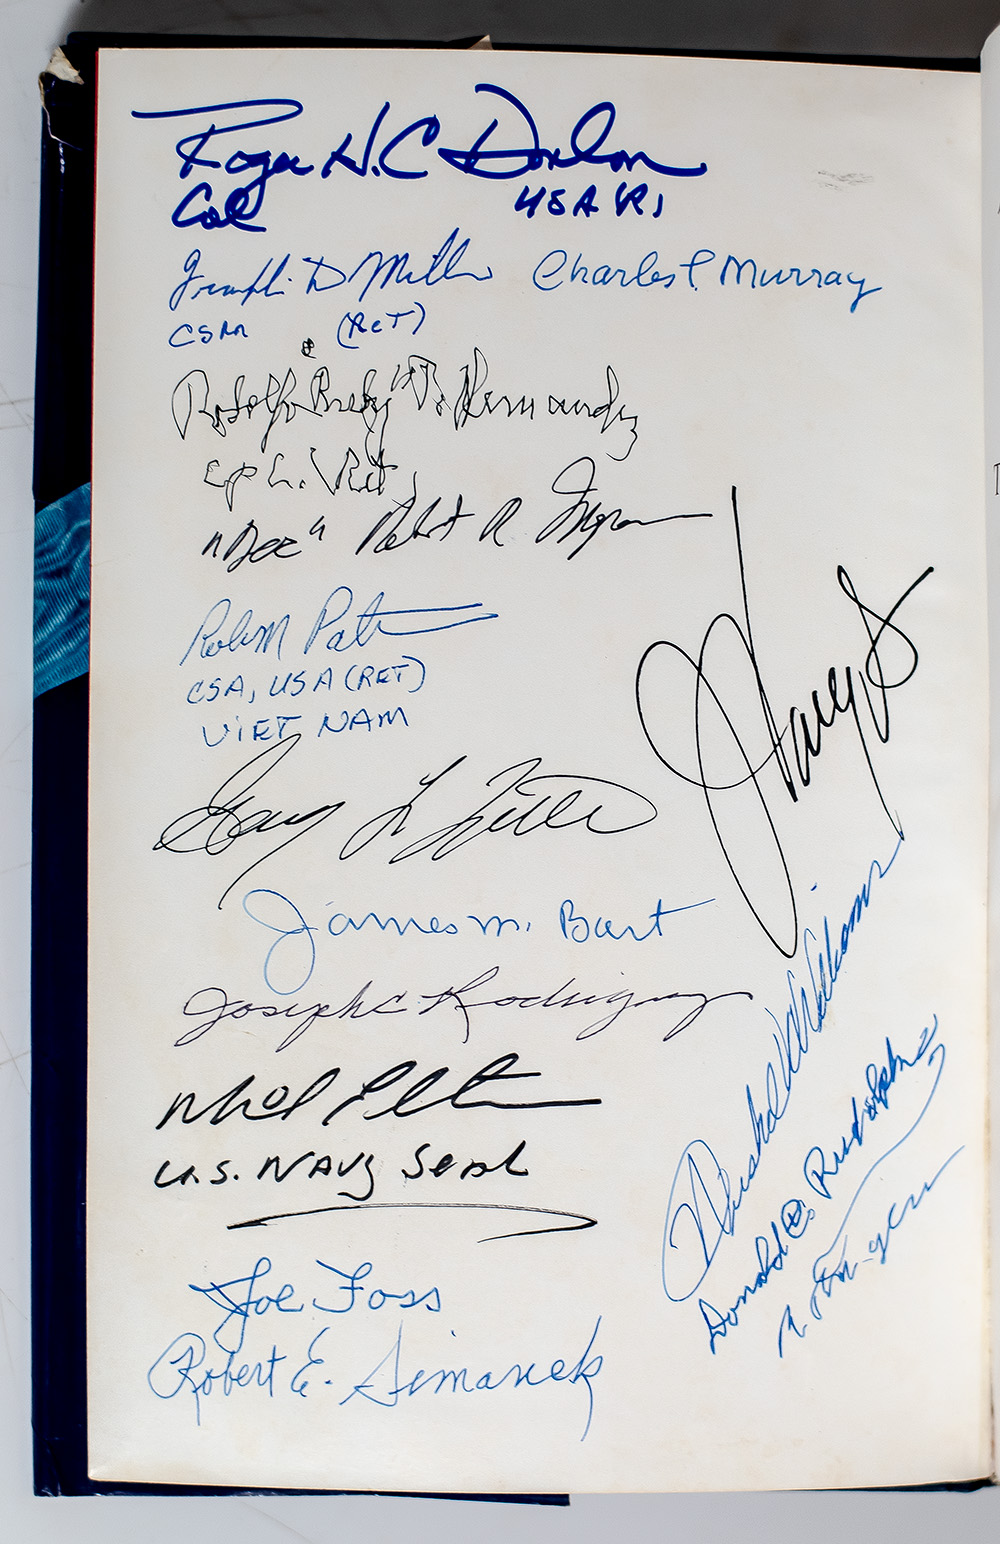 Roger H.C. Donlon
Col USA (R)
Franklin D Miller Charles P. Murray
CSM (RET)
Rodolfo "Rudy" P. Hernandez
Cpl. Ret,
"Doc" Robert R. Ingram
Robert M Patterson
CSM, USA (RET)
VIET NAM
Gary L Littrell
James M. Burt
Joseph C Rodriguez
U.S. NAVY Seal
Joe Foss
Robert E. Simanek
J Harvey
Hershel W Williams
Donald E. Rudolph